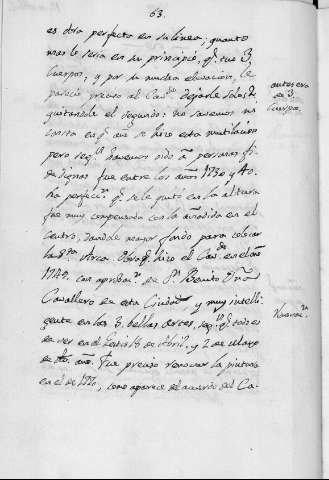 63.
es obra perfecta en su linea, quanto
mas lo seria en su principio, q.e tuvo 3,
Cuerpos, y por su mucha elevacion, le
parecio preciso al Cav.do dejarle solos dos
quitandole el segundo: no savemos ni
consta en q.e año se hizo esta mutilacion
pero seg.n havemos oido à personas fi-
dedignas fue entre los años 1730 y 40.
La perfecc.n q.e se le quito en la altura
fue muy compensada con la añadida en el
centro, dandole mayor fondo para colocar
la Arca. Obra q.e hizo el Cav.do en el año
1779. con aprobac.n de D.n Benito
Cavallero de esta Ciudad, y muy inteli-
gente en las 3. bellas Artes, seg.n q.e todo es
de ver en el de Abril, y 2 de Mayo
de año. Fue preciso renovar la pintura
en el de como aparece del acuerdo del Ca-
antes era
en 3.
Cuerpos